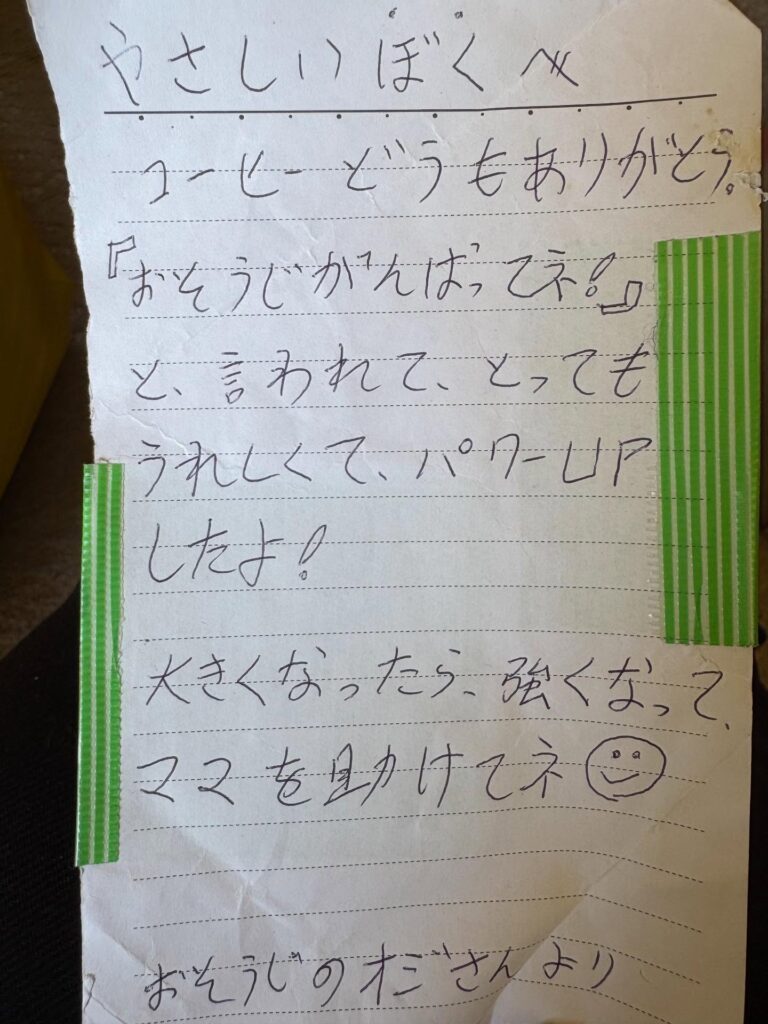 やさしいぼくへ
コーヒーどうもありがとう。
『おそうじがんばってネ!』
と、言われて、とっても
うれしくて、パワーUP
したよ!
大きくなったら、強くなって、
ママを助けてネ
おそうじのオジさんより